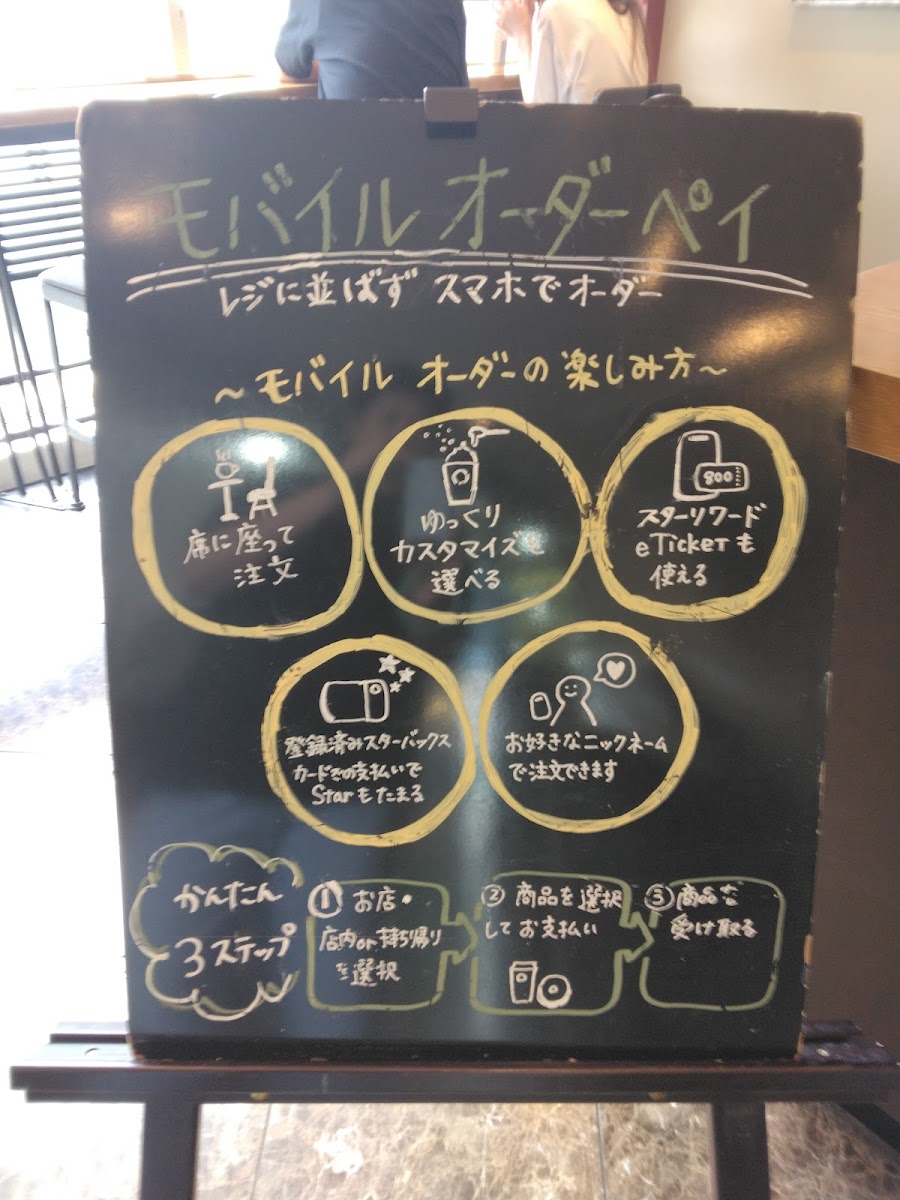 モバイル オーダー ペイ
レジに並ばず スマホでオーダー
～モバイル オーダーの楽しみ方～
席に座って
注文
ゆっくり
カスタマイズを
選べる
800
スターリワード
eTicketも
使える
登録済みスターバックス
カードでの支払いで
Starもたまる
お好きなニックネーム
で注文できます
かんたん
3ステップ
① お店・
店内or持ち帰り
を選択
② 商品を選択
してお支払い
③ 商品を
受け取る